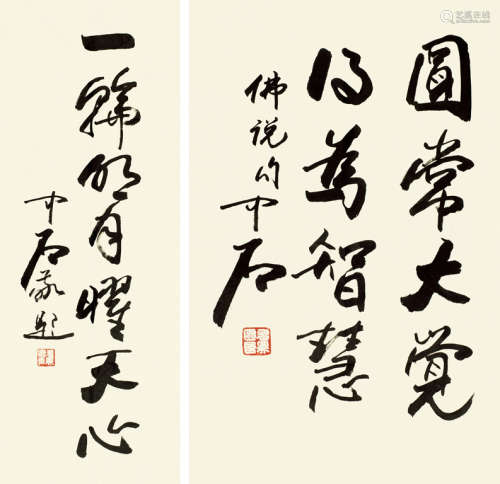 圓常大覺
得為智慧
佛說句 中石
一輪明月耀天心
中石敬題